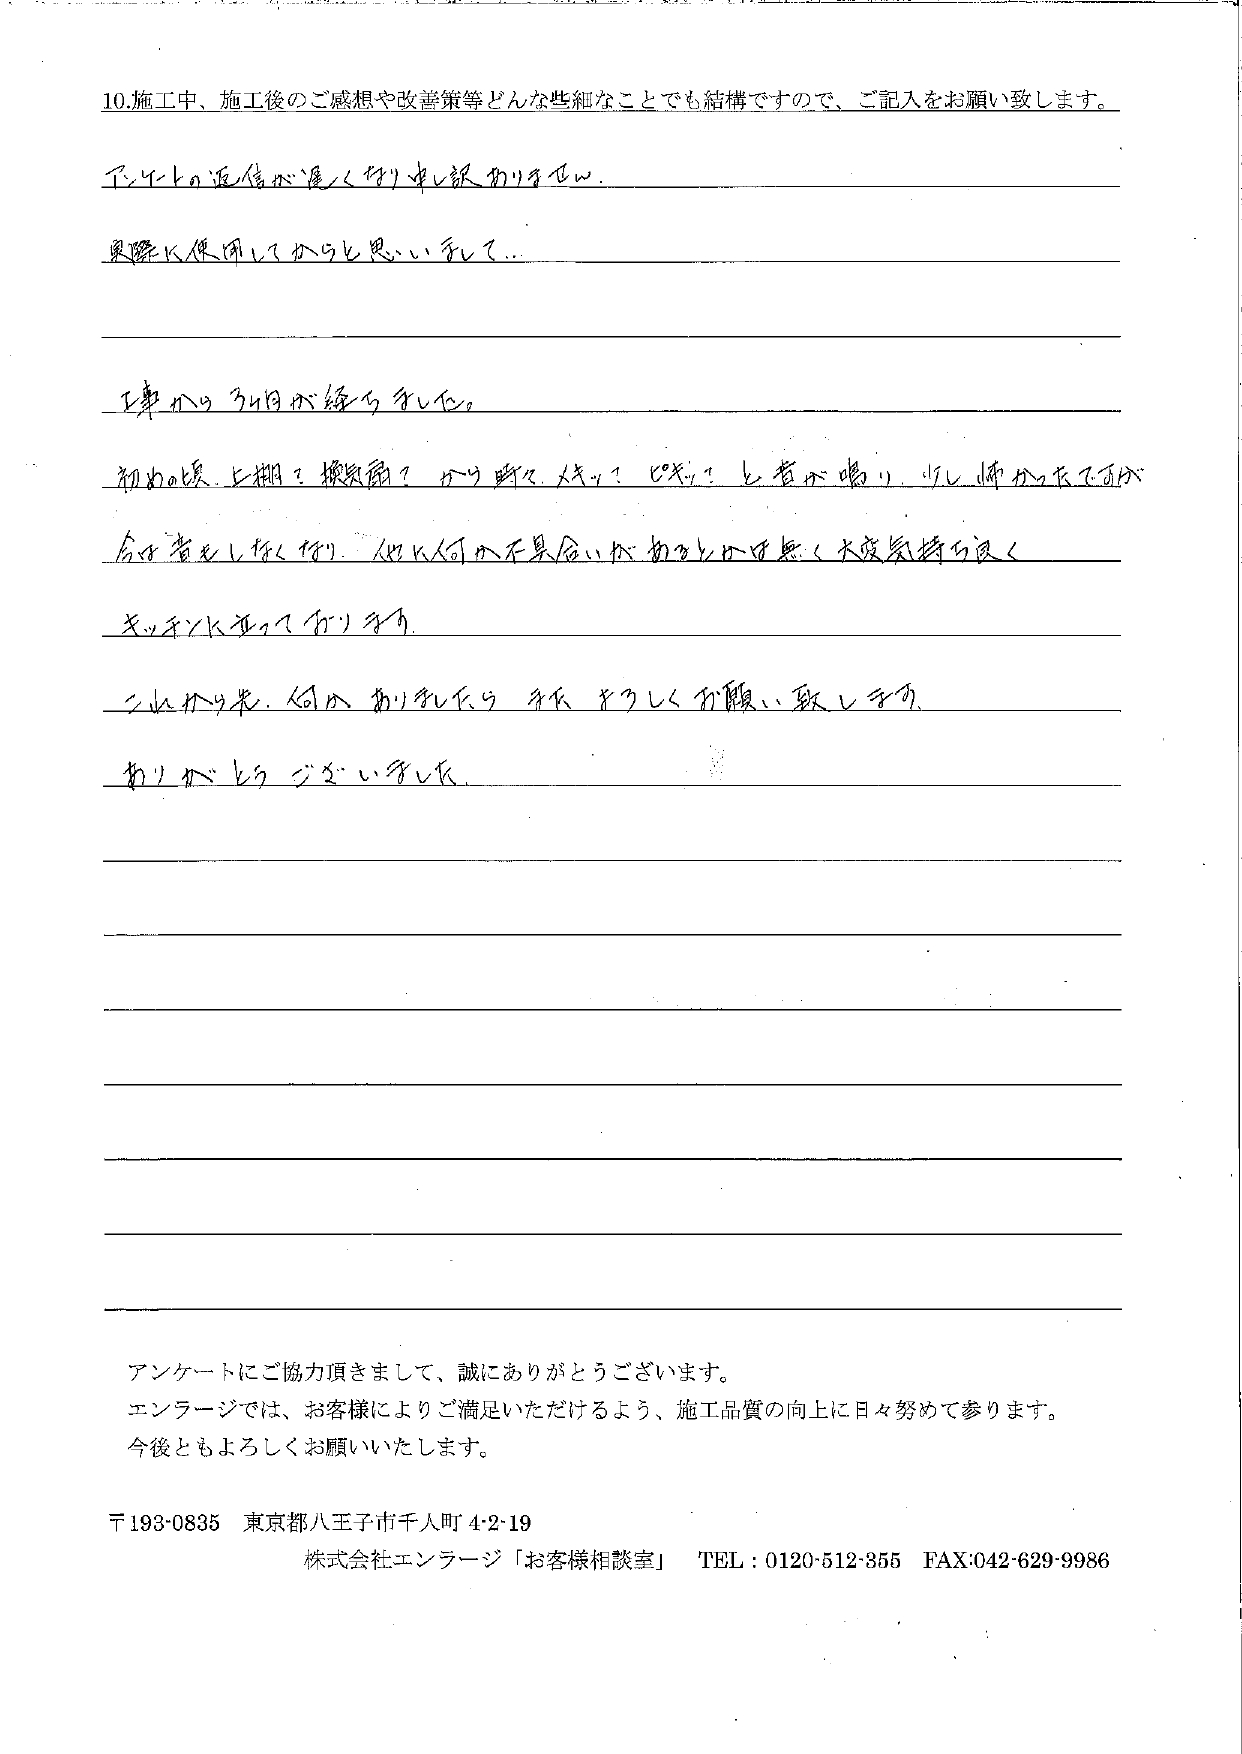 10.施工中、施工後のご感想や改善策等どんな些細なことでも結構ですので、ご記入をお願い致します。
アンケートの返信が遅くなり申し訳ありません.
実際に使用してからと思いまして...
工事から3ヶ月が経ちました。
初めの頃.上棚?換気扇?から時々.メキッて ピキッて と音が鳴り.少し怖かったですが
今は音もしなくなり.他に何か不具合いがあるとかは無く大変気持ち良く
キッチンに立っております.
これから先.何かありましたら また よろしくお願い致します.
ありがとうございました.
アンケートにご協力頂きまして、誠にありがとうございます。
エンラージでは、お客様によりご満足いただけるよう、施工品質の向上に日々努めて参ります。
今後ともよろしくお願いいたします。
〒193-0835 東京都八王子市千人町 4-2-19
株式会社エンラージ「お客様相談室」 TEL：0120-512-355 FAX:042-629-9986